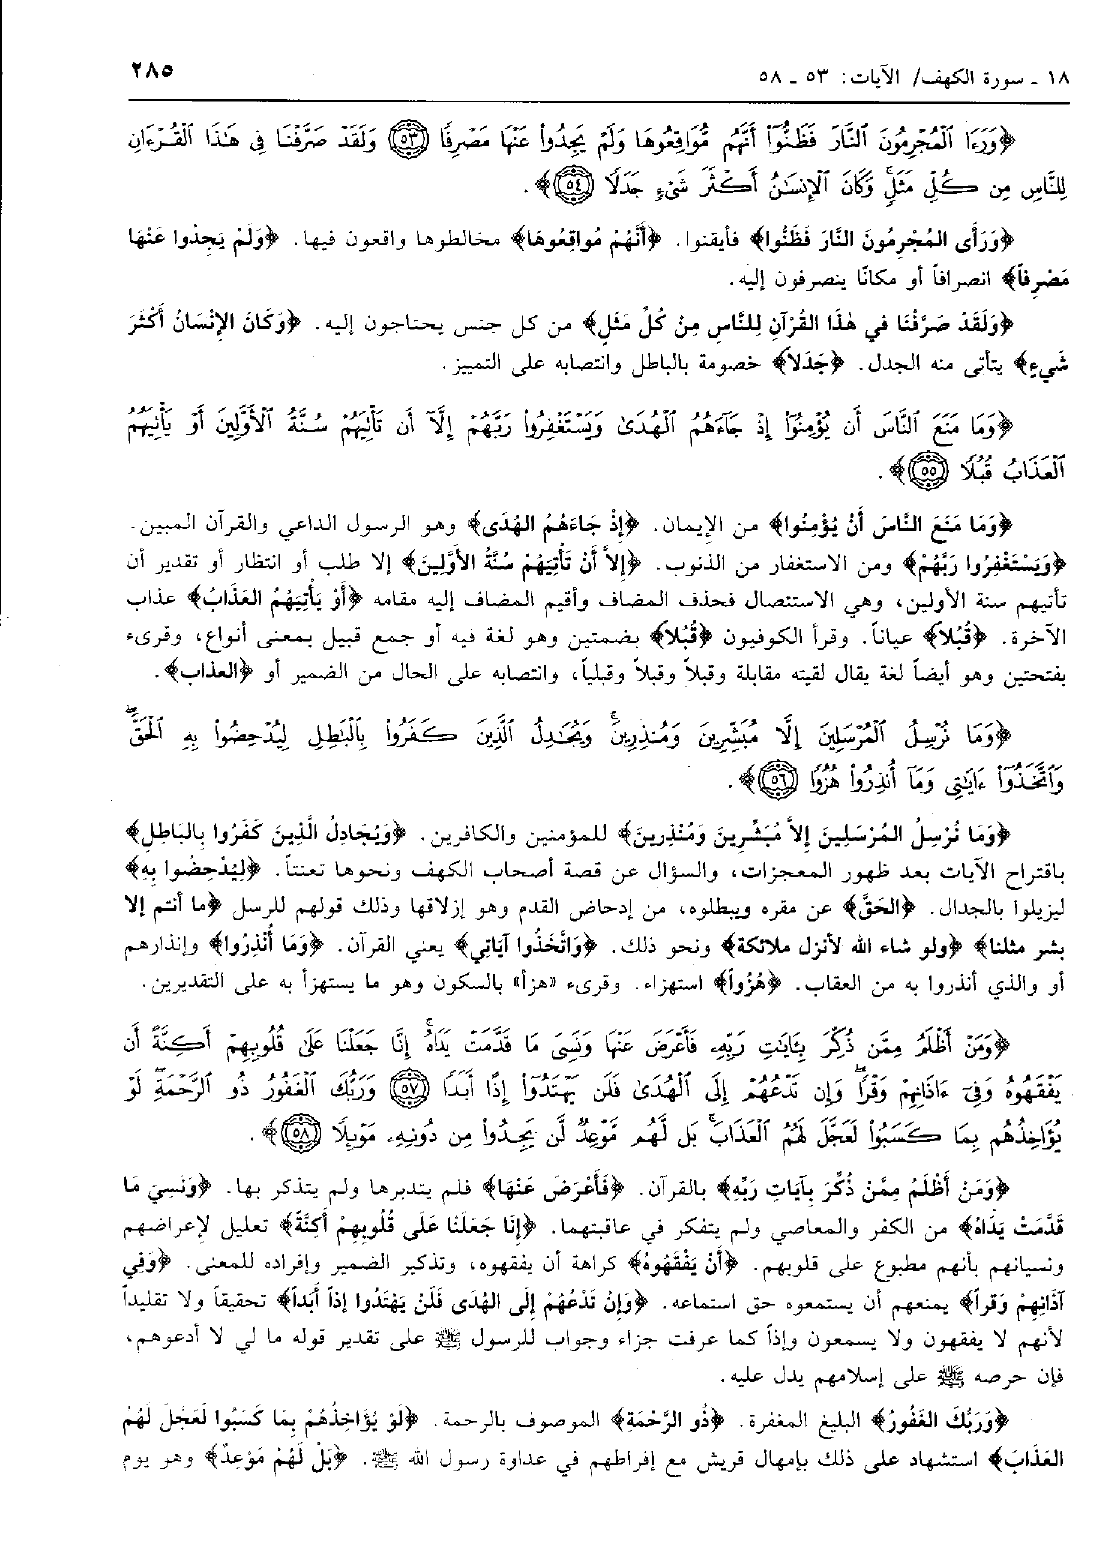 ١٨ ـ سورة الكهف/ الآيات: ٥٣ ـ ٥٨
٢٨٥
﴿وَرَءَا ٱلْمُجْرِمُونَ ٱلنَّارَ فَظَنُّوٓا۟ أَنَّهُم مُّوَاقِعُوهَا وَلَمْ يَجِدُوا۟ عَنْهَا مَصْرِفًا ٥٣ وَلَقَدْ صَرَّفْنَا فِى هَـٰذَا ٱلْقُرْءَانِ
لِلنَّاسِ مِن كُلِّ مَثَلٍ ۚ وَكَانَ ٱلْإِنسَـٰنُ أَكْثَرَ شَىْءٍ جَدَلًا ٥٤﴾.
﴿وَرَأى المُجْرِمُونَ النَّارَ فَظَنُّوا﴾ فأيقنوا. ﴿أَنَّهُمْ مُوَاقِعُوهَا﴾ مخالطوها واقعون فيها. ﴿وَلَمْ يَجِدُوا عَنْهَا
مَصْرِفاً﴾ انصرافاً أو مكانًا ينصرفون إليه.
﴿وَلَقَدْ صَرَّفْنَا في هٰذَا القُرْآنِ لِلنَّاسِ مِنْ كُلِّ مَثَلٍ﴾ من كل جنس يحتاجون إليه. ﴿وَكَانَ الإِنْسَانُ أَكْثَرَ
شَيءٍ﴾ يتأتى منه الجدل. ﴿جَدَلاً﴾ خصومة بالباطل وانتصابه على التمييز.
﴿وَمَا مَنَعَ ٱلنَّاسَ أَن يُؤْمِنُوٓا۟ إِذْ جَآءَهُمُ ٱلْهُدَىٰ وَيَسْتَغْفِرُوا۟ رَبَّهُمْ إِلَّآ أَن تَأْتِيَهُمْ سُنَّةُ ٱلْأَوَّلِينَ أَوْ يَأْتِيَهُمُ
ٱلْعَذَابُ قُبُلًا ٥٥﴾.
﴿وَمَا مَنَعَ النَّاسَ أَنْ يُؤْمِنُوا﴾ من الإيمان. ﴿إِذْ جَاءَهُمُ الهُدَى﴾ وهو الرسول الداعي والقرآن المبين.
﴿وَيَسْتَغْفِرُوا رَبَّهُمْ﴾ ومن الاستغفار من الذنوب. ﴿إِلاَّ أَنْ تَأْتِيَهُمْ سُنَّةُ الأَوَّلِينَ﴾ إلا طلب أو انتظار أو تقدير أن
تأتيهم سنة الأولين، وهي الاستئصال فحذف المضاف وأقيم المضاف إليه مقامه ﴿أَوْ يَأْتِيَهُمْ العَذَابُ﴾ عذاب
الآخرة. ﴿قُبُلاً﴾ عياناً. وقرأ الكوفيون ﴿قُبُلا﴾ بضمتين وهو لغة فيه أو جمع قبيل بمعنى أنواع، وقرىء
بفتحتين وهو أيضاً لغة يقال لقيته مقابلة وقبلاً وقبلاً وقبلياً، وانتصابه على الحال من الضمير أو ﴿العذاب﴾.
﴿وَمَا نُرْسِلُ ٱلْمُرْسَلِينَ إِلَّا مُبَشِّرِينَ وَمُنذِرِينَ ۚ وَيُجَـٰدِلُ ٱلَّذِينَ كَفَرُوا۟ بِٱلْبَـٰطِلِ لِيُدْحِضُوا۟ بِهِ ٱلْحَقَّ ۖ
وَٱتَّخَذُوٓا۟ ءَايَـٰتِى وَمَآ أُنذِرُوا۟ هُزُوًا ٥٦﴾.
﴿وَمَا نُرْسِلُ المُرْسَلِينَ إِلاَّ مُبَشِّرِينَ وَمُنْذِرِينَ﴾ للمؤمنين والكافرين. ﴿وَيُجَادِلُ الَّذِينَ كَفَرُوا بِالبَاطِلِ﴾
باقتراح الآيات بعد ظهور المعجزات، والسؤال عن قصة أصحاب الكهف ونحوها تعنتاً. ﴿لِيُدْحِضُوا بِهِ﴾
ليزيلوا بالجدال. ﴿الحَقَّ﴾ عن مقره ويبطلوه، من إدحاض القدم وهو إزلاقها وذلك قولهم للرسل ﴿ما أنتم إلا
بشر مثلنا﴾ ﴿ولو شاء الله لأنزل ملائكة﴾ ونحو ذلك. ﴿وَاتَّخَذُوا آيَاتي﴾ يعني القرآن. ﴿وَمَا أُنْذِرُوا﴾ وإنذارهم
أو والذي أنذروا به من العقاب. ﴿هُزُواً﴾ استهزاء. وقرىء «هزأ» بالسكون وهو ما يستهزأ به على التقديرين.
﴿وَمَنْ أَظْلَمُ مِمَّن ذُكِّرَ بِـَٔايَـٰتِ رَبِّهِۦ فَأَعْرَضَ عَنْهَا وَنَسِىَ مَا قَدَّمَتْ يَدَاهُ ۚ إِنَّا جَعَلْنَا عَلَىٰ قُلُوبِهِمْ أَكِنَّةً أَن
يَفْقَهُوهُ وَفِىٓ ءَاذَانِهِمْ وَقْرًا ۖ وَإِن تَدْعُهُمْ إِلَى ٱلْهُدَىٰ فَلَن يَهْتَدُوٓا۟ إِذًا أَبَدًا ٥٧ وَرَبُّكَ ٱلْغَفُورُ ذُو ٱلرَّحْمَةِ ۖ لَوْ
يُؤَاخِذُهُم بِمَا كَسَبُوا۟ لَعَجَّلَ لَهُمُ ٱلْعَذَابَ ۚ بَل لَّهُم مَّوْعِدٌ لَّن يَجِدُوا۟ مِن دُونِهِۦ مَوْئِلًا ٥٨﴾.
﴿وَمَنْ أَظْلَمُ مِمَّنْ ذُكِّرَ بِآيَاتِ رَبِّهِ﴾ بالقرآن. ﴿فَأَعْرَضَ عَنْهَا﴾ فلم يتدبرها ولم يتذكر بها. ﴿وَنَسِيَ مَا
قَدَّمَتْ يَدَاهُ﴾ من الكفر والمعاصي ولم يتفكر في عاقبتهما. ﴿إِنَّا جَعَلْنَا عَلَى قُلُوبِهِمْ أَكِنَّةً﴾ تعليل لإعراضهم
ونسيانهم بأنهم مطبوع على قلوبهم. ﴿أَنْ يَفْقَهُوهُ﴾ كراهة أن يفقهوه، وتذكير الضمير وإفراده للمعنى. ﴿وَفي
آذَانِهِمْ وَقراً﴾ يمنعهم أن يستمعوه حق استماعه. ﴿وَإِنْ تَدْعُهُمْ إِلَى الهُدَى فَلَنْ يَهْتَدُوا إِذاً أَبَداً﴾ تحقيقاً ولا تقليداً
لأنهم لا يفقهون ولا يسمعون وإذاً كما عرفت جزاء وجواب للرسول ﷺ على تقدير قوله ما لي لا أدعوهم،
فإن حرصه ﷺ على إسلامهم يدل عليه.
﴿وَرَبُّكَ الغَفُورُ﴾ البليغ المغفرة. ﴿ذُو الرَّحْمَةِ﴾ الموصوف بالرحمة. ﴿لَوْ يُؤَاخِذُهُمْ بِمَا كَسَبُوا لَعَجَّلَ لَهُمْ
العَذَابَ﴾ استشهاد على ذلك بإمهال قريش مع إفراطهم في عداوة رسول الله ﷺ. ﴿بَلْ لَهُمْ مَوْعِدٌ﴾ وهو يوم